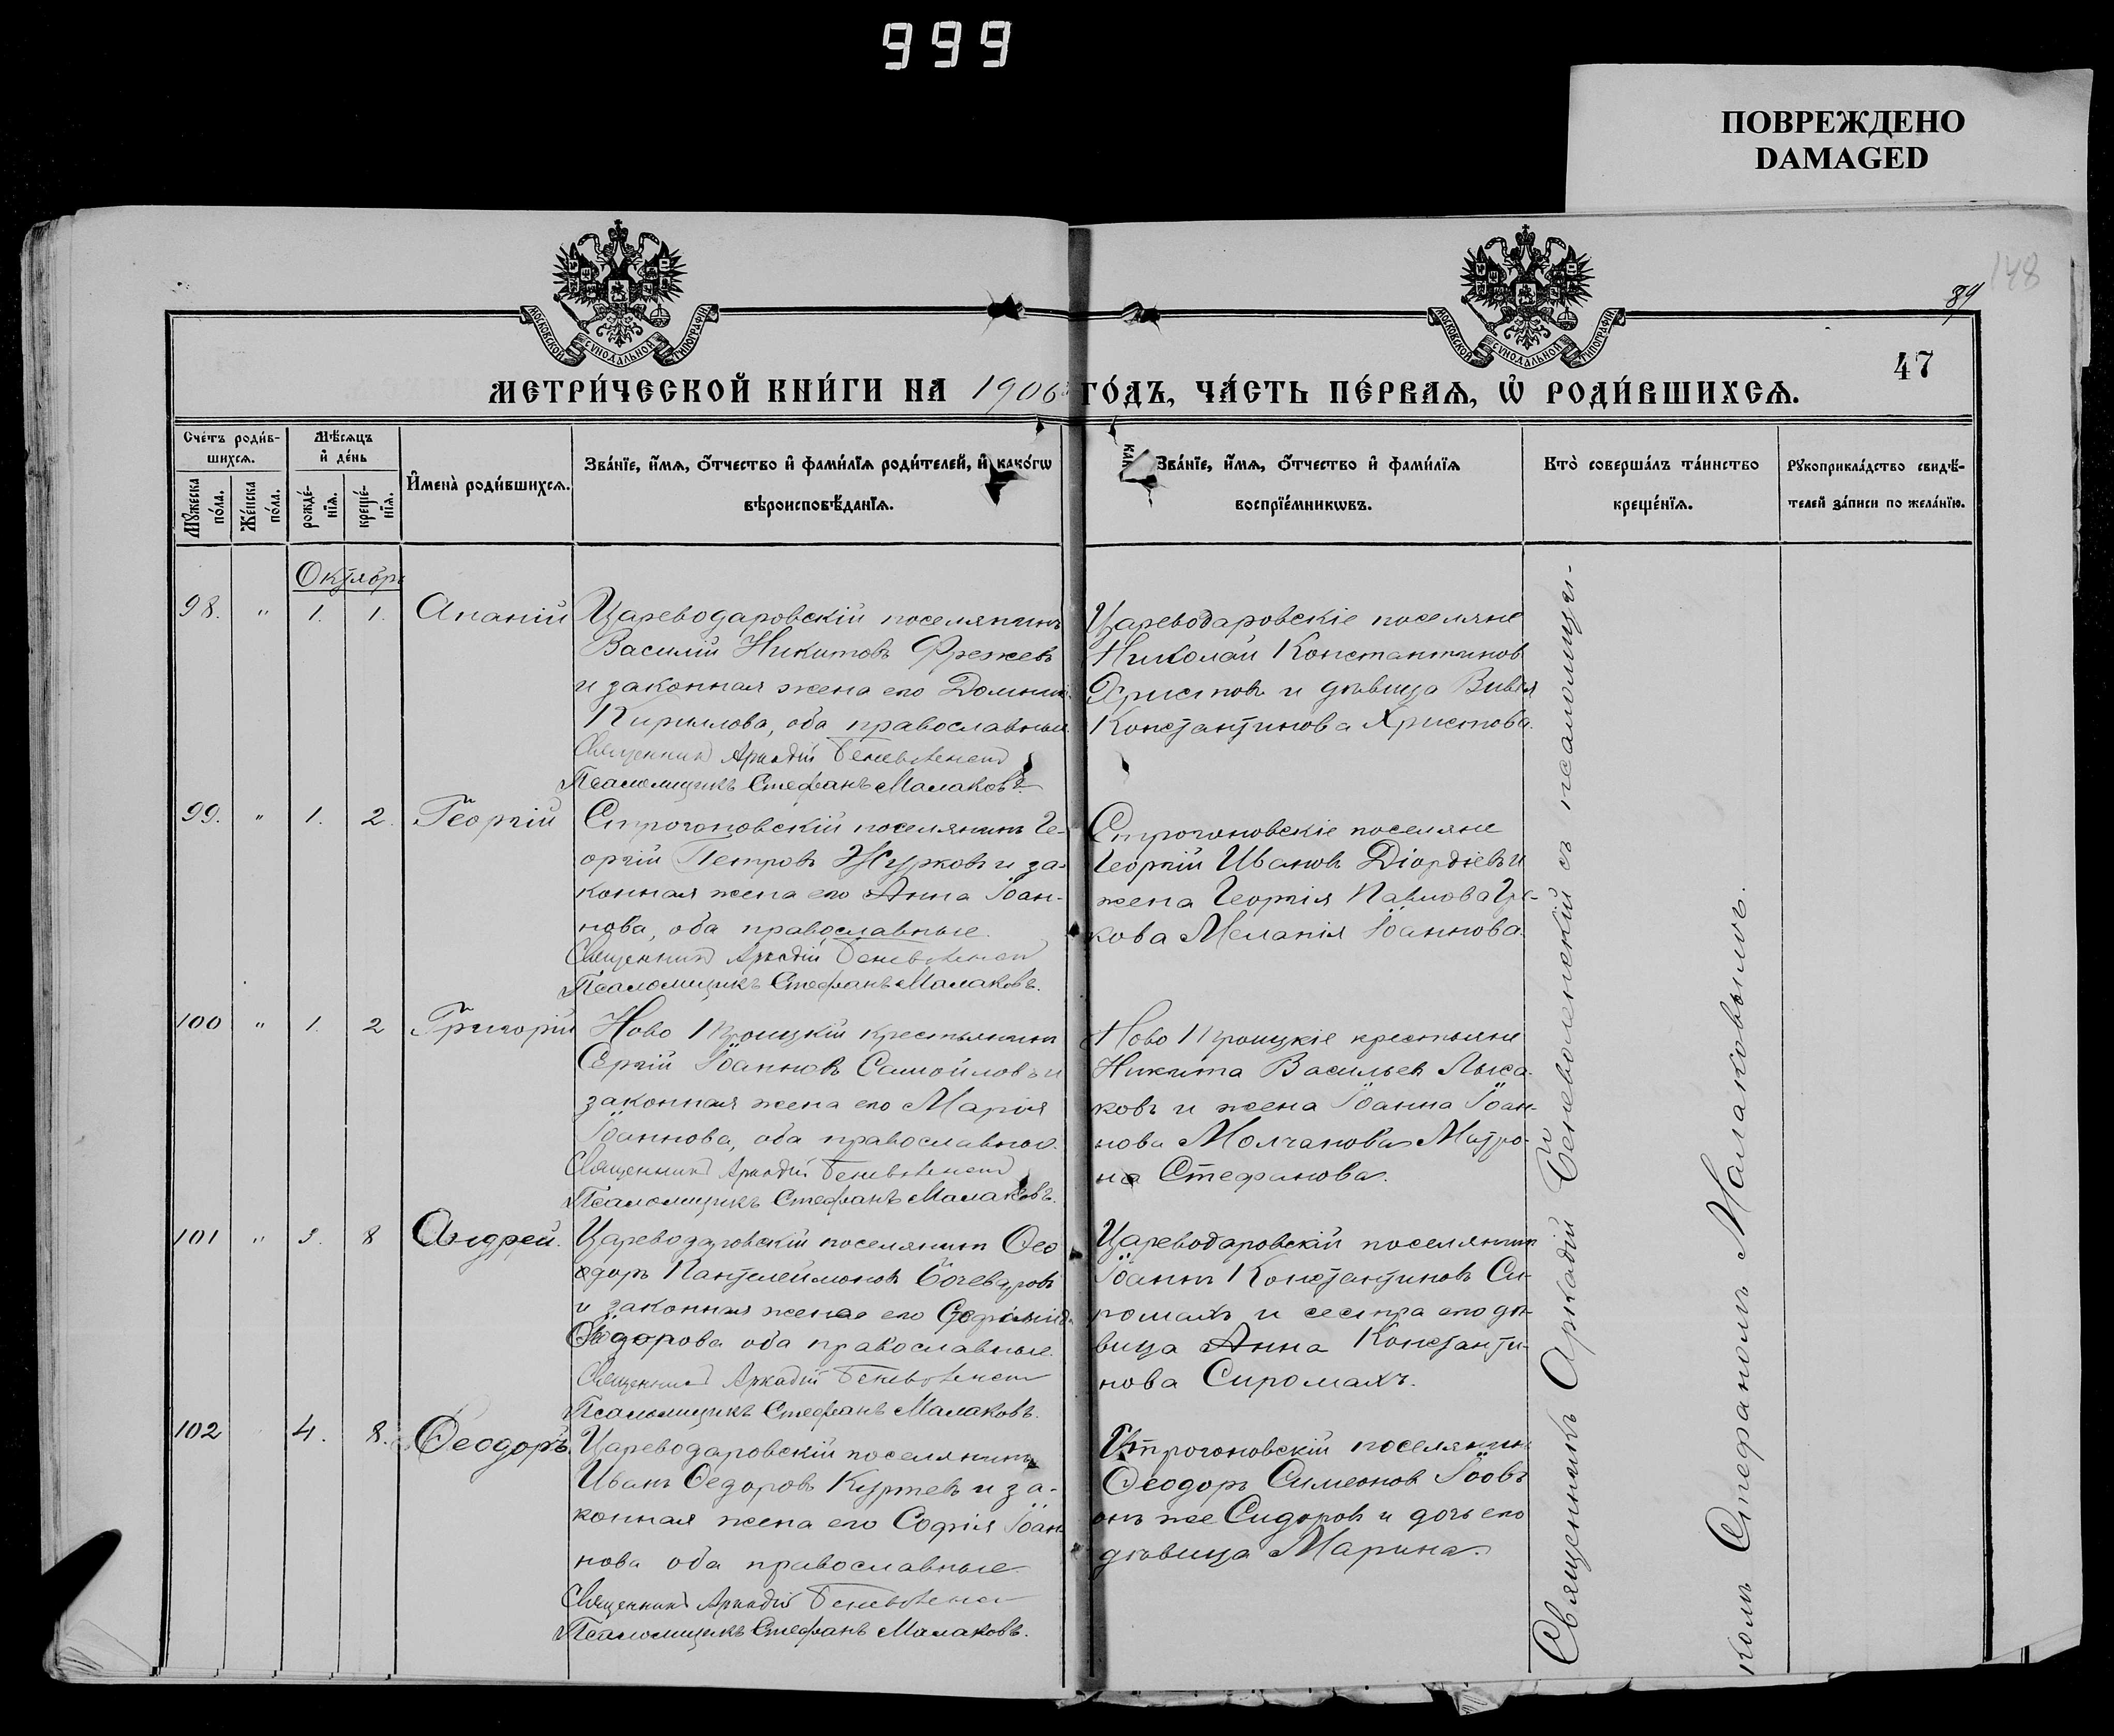 999
ПОВРЕЖДЕНО
DAMAGED
148
89
47
МОСКОВСКОЙ СУНОДАЛЬНОЙ ТИПОГРАФІИ
МОСКОВСКОЙ СУНОДАЛЬНОЙ ТИПОГРАФІИ
МЕТРИ́ЧЕСКОЙ КНИ́ГИ НА 1906 ГО́ДЪ, ЧА́СТЬ ПЕ́РВАѦ, Ѡ҆ РОДИ́ВШИХСѦ.
Сче́тъ роди́в-
шихсѧ.
Мꙋ́жеска по́ла.
Же́нска по́ла.
Мѣ́сѧцъ
и҆ де́нь
рожде́-
нїѧ.
креще́-
нїѧ.
И҆мена̀ роди́вшихсѧ.
Зва́нїе, и҆́мѧ, ѻ҆́тчество и҆ фами́лїѧ роди́телей, и҆ како́гѡ
вѣроисповѣ́данїѧ.
Зва́нїе, и҆́мѧ, ѻ҆́тчество и҆ фами́лїѧ
воспрїе́мникѡвъ.
Кто̀ соверша́лъ та́инство
креще́нїѧ.
Рꙋкоприкла́дство свидѣ́-
телей за́писи по жела́нїю.
Октябрь
98. " 1. 1. Ананій
Цареводаровскій поселянинъ
Василій Никитовъ Фрежевъ
и законная жена его Домникія
Кирилова, оба православные.
Священникъ Аркадій Беневоленскій
Псаломщикъ Стефанъ Малаковъ.
Цареводаровскіе поселяне
Николай Константинов
Христовъ и дѣвица
Константинова Христова.
99. " 1. 2. Георгій
Строгоновскій поселянинъ Ге-
оргій Петровъ Журковъ и за-
конная жена его Анна Іоан-
нова, оба православные.
Священникъ Аркадій Беневоленскій
Псаломщикъ Стефанъ Малаковъ.
Строгоновскіе поселяне
Георгій Ивановъ Діордіевъ и
жена Георгія Павлова Гре-
кова Меланія Іоаннова.
100 " 1. 2 Григорій
Ново Троицкій крестьянинъ
Сергій Іоанновъ Самойловъ и
законная жена его Марія
Іоаннова, оба православные.
Священникъ Аркадій Беневоленскій
Псаломщикъ Стефанъ Малаковъ.
Ново Троицкіе крестьяне
Никита Васильевъ Лыса-
ковъ и жена Іоанна Іоан-
нова Молчанова Матро-
на Стефанова.
101 " 3. 8 Андрей.
Цареводаровскій поселянинъ Ѳео
доръ Пантелеймоновъ Бочеваровъ
и законная жена его
Ѳеодорова оба православные.
Священникъ Аркадій Беневоленскій
Псаломщикъ Стефанъ Малаковъ.
Цареводаровскій поселянинъ
Іоаннъ Константиновъ Си-
ромахъ и сестра его дѣ-
вица Анна Константи-
нова Сиромахъ.
102 4. 8. Ѳеодоръ
Цареводаровскій поселянинъ
Иванъ Ѳедоровъ Куртевъ и за-
конная жена его Софія Іоан
нова оба православные.
Священникъ Аркадій Беневоленскій
Псаломщикъ Стефанъ Малаковъ.
Строгоновскій поселянинъ
Ѳеодоръ Симеоновъ Іовъ
онъ же Сидоровъ и дочь его
дѣвица Марина.
Священникъ Аркадій Беневоленскій съ псаломщи-
комъ Стефаномъ Малаковымъ.